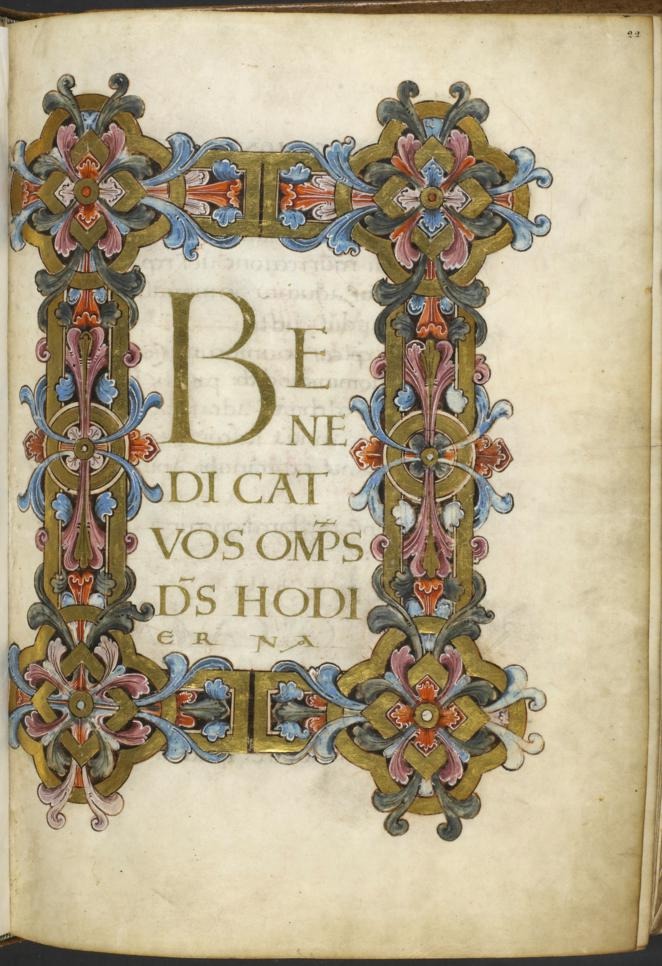 22
BE
NE
DI CAT
VOS OM̅P̅S
D̅S HODI
ERNA